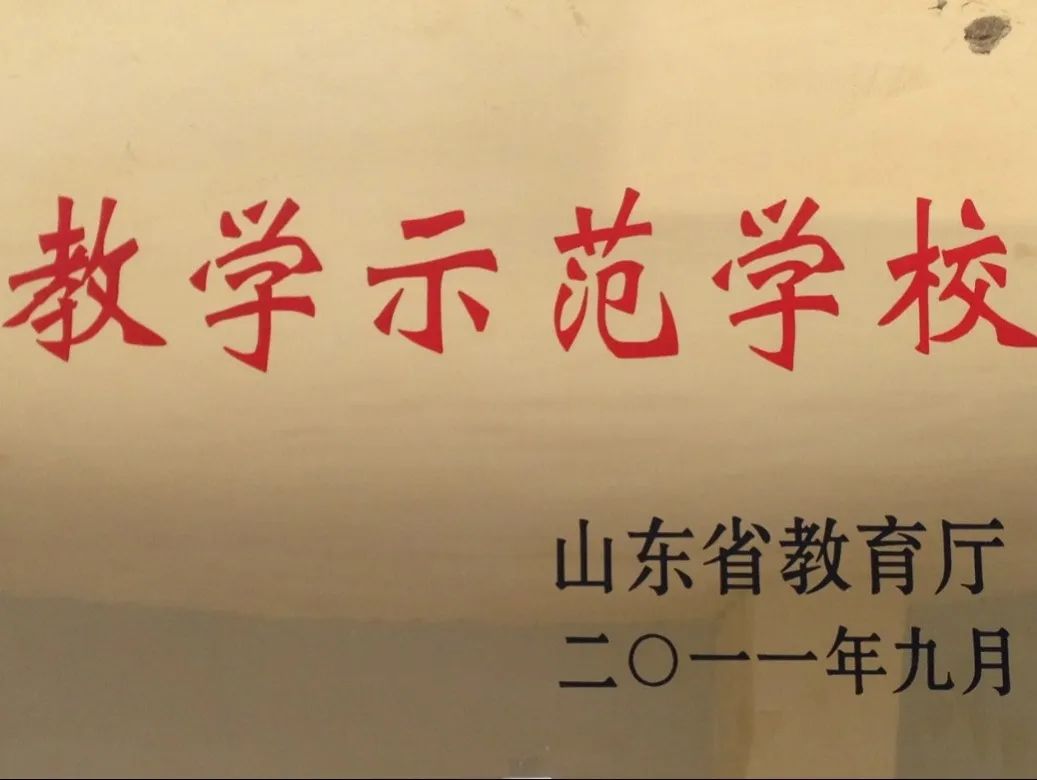 教学示范学校
山东省教育厅
二〇一一年九月